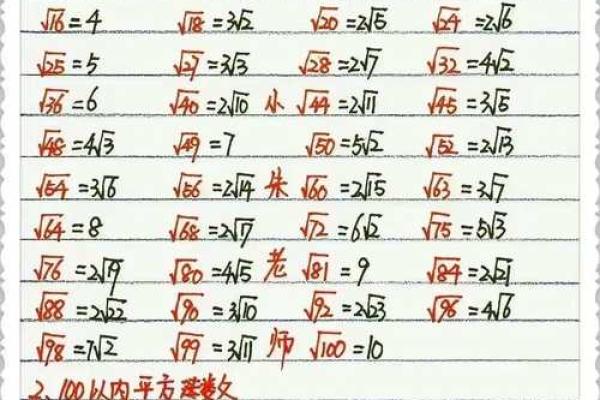 √16=4 √18=3√2 √20=2√5 √24=2√6
√25=5 √27=3√3 √28=2√7 √32=4√2
√36=6 √40=2√10 小 √44=2√11 √45=3√5
√48=4√3 √49=7 √50=5√2 √52=2√13
√54=3√6 √56=2√14 朱 √60=2√15 √63=3√7
√64=8 √68=2√17 √72=6√2 √75=5√3
√76=2√19 √80=4√5 老 √81=9 √84=2√21
√88=2√22 √90=3√10 √92=2√23 √96=4√6
√98=7√2 √99=3√11 师 √100=10
2、100以内平方